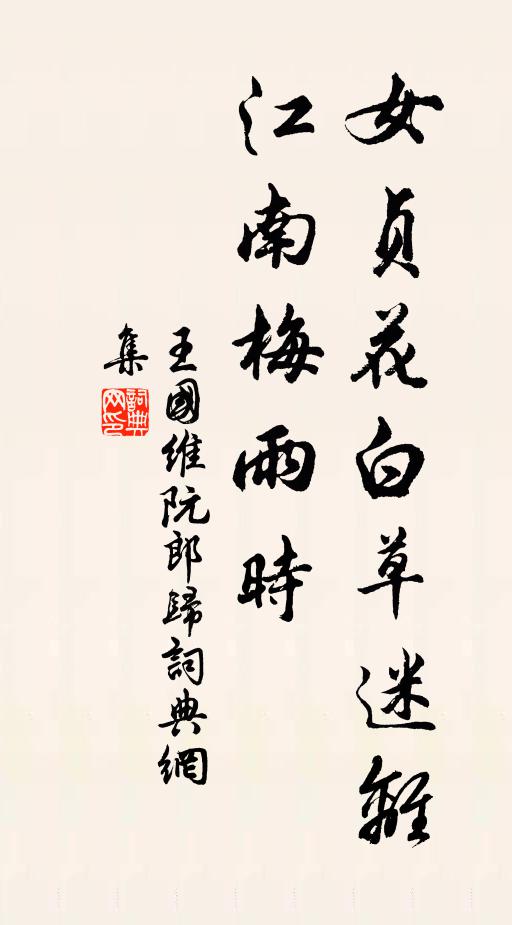 女貞花白草迷離
江南梅雨時
王國維阮郎歸詞典網
集
詞典网印